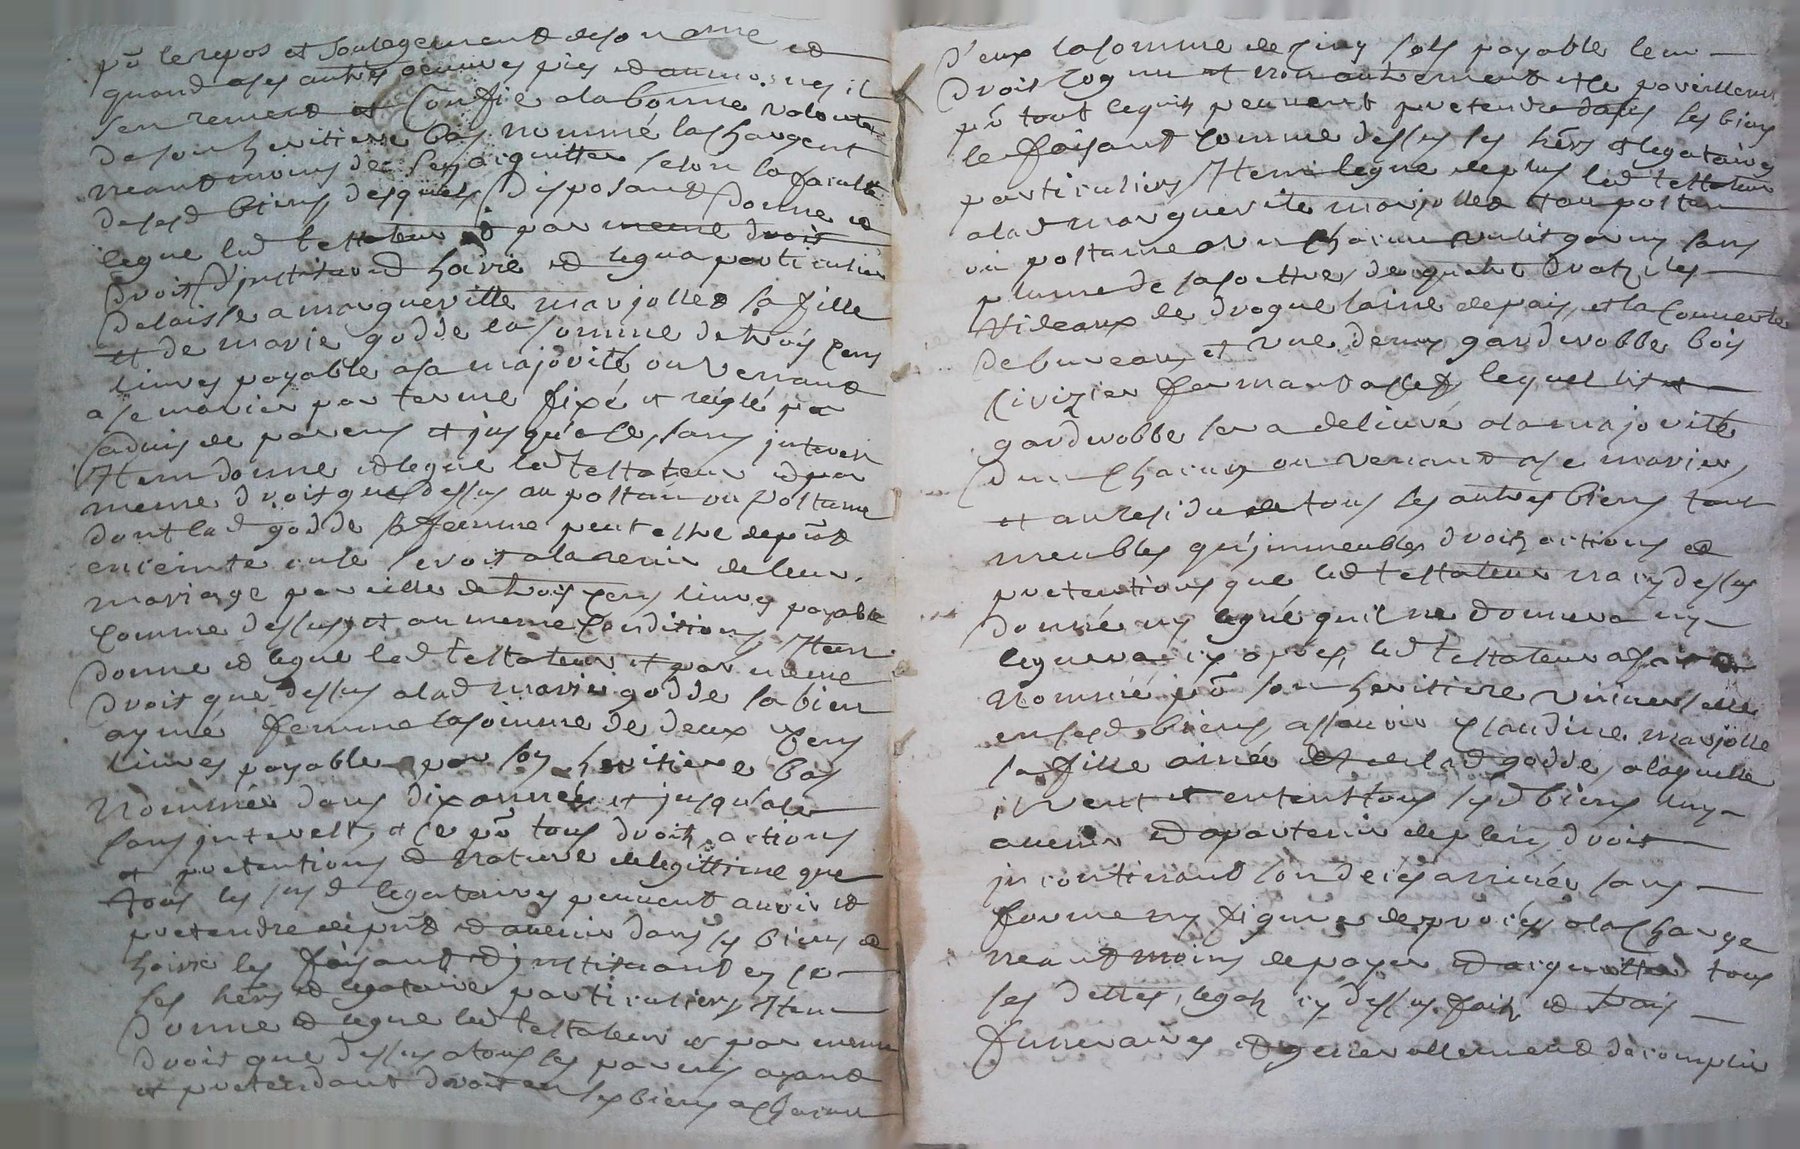 pū le repos et soulagement de son ame et
quand a ses autres œuvres pies et aumosnes il
s'en remend et confie a la bonne volonté
de son heritiere bas nommé la chargent
neantmoins de sen acquitter selon la faculté
de sesd biens desquels disposant donne et
legue led testateur et par meme droit
droit d'institued hoirie et legua particulier
delaisse a margueritte marjolled sa fille
et de marie godde la somme de trois cens
livres payable a sa majorité ou venand
a se marier par terme fixé et réiglé par
ladvis de parens et jusqu'ale sans interest
Item donne et legue led testateur et par
meme droit que dessus au postan ou postume
dont lad godde sa femme peut estre de pñt
enceinte ou le seroit a ladvenir de leur
mariage pareille de trois cens livres payable
comme dessus et au meme conditions Item
donne et legue led testateur et par meme
droit que dessus a lad marie godde sa bien
aymée femme la somme de deux cens
livres payable par son heritiere bas
nommée dans dix années et jusqu'ale
sans interest, et ce pū tous droits actions
et pretentions et nature de legittime que
tous les susd legataires peuvent avoir et
pretendre de pñt et avenir dans ses biens et
hoirie les faisant et instituant en ce
ses hērs et legataire particuliers Item
donne et legue led testateur et par meme
droit que dessus a tous ses parens ayant
et pretendant droit en ses biens a chacun
d'eux la somme de cinq sols payable leur
droit cognu et non autrement et le pareillement
pū tout ce quils peuvent pretendre dans ses biens
le faisant comme dessus ses hērs et legataires
particuliers Item legue de plus led testateur
a lad margueritte marjolled et au postan
ou postume a un chacun un lit garny sans
plume de sa coettre, de quatre dratz les
rideaux de drogue laine de pais, et la couverte
de bureaux et une demy garderobbe bois
cirizier fermant a clef, lequel lit et
garderobbe sera delivré a la majorité
d'un chacun ou venand a se marier
et au residu de tous ses autres biens tant
meubles qu'immeubles droits actions et
pretentions que led testateur n'a cy dessus
donné ny legué qu'il ne donnera ny
leguera cy apres, led testateur a fait et
nommé pū son heritiere universelle
en sesd biens assavoir claudine marjolle
sa fille ainée et de lad godde, a laquelle
il veut et entend tous sesd biens luy
avenir et apartenir de plein droit
incontinant son deces arrivée sans
forme ny figure de proces a la charge
neantmoins de payer et acquitter tous
ses dettes, legatz cy dessus faitz et frais
funeraires et generallement d'acomplir